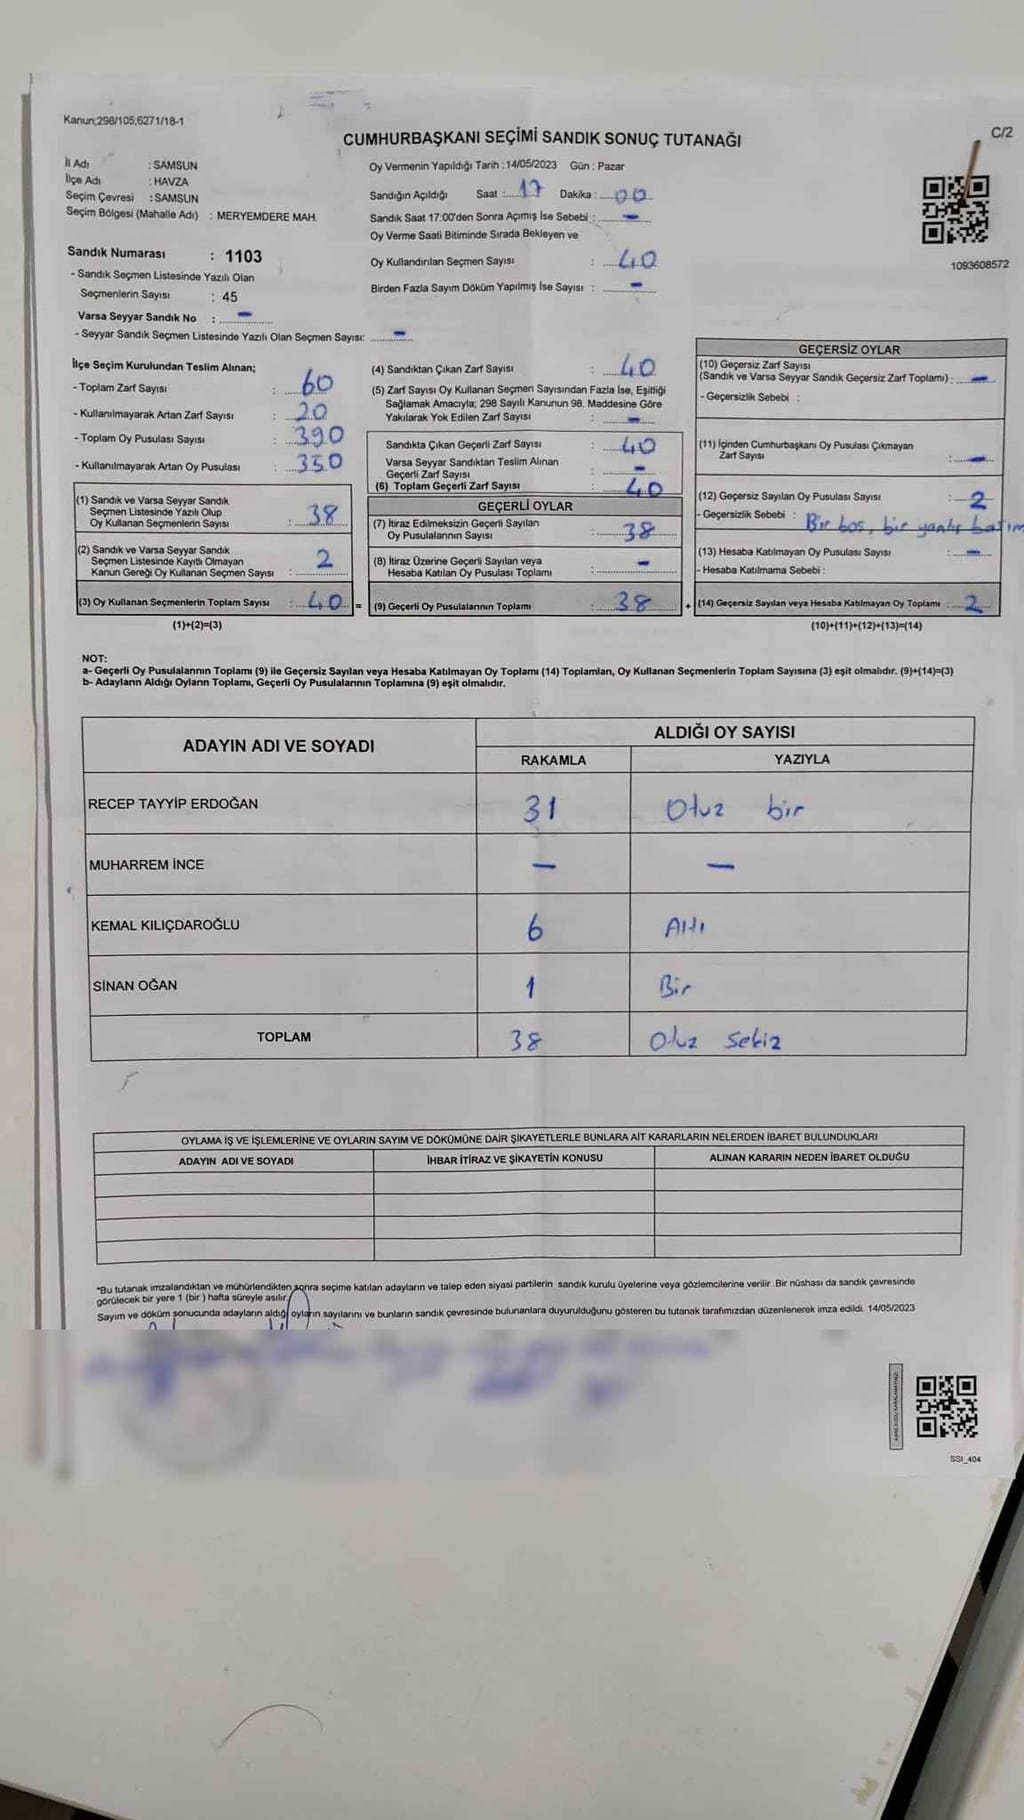 Kanun;298/105,6271/18-1
C/2
CUMHURBAŞKANI SEÇİMİ SANDIK SONUÇ TUTANAĞI
İl Adı : SAMSUN
İlçe Adı : HAVZA
Seçim Çevresi : SAMSUN
Seçim Bölgesi (Mahalle Adı) : MERYEMDERE MAH.
Sandık Numarası : 1103
- Sandık Seçmen Listesinde Yazılı Olan
Seçmenlerin Sayısı : 45
Varsa Seyyar Sandık No : -
- Seyyar Sandık Seçmen Listesinde Yazılı Olan Seçmen Sayısı: -
Oy Vermenin Yapıldığı Tarih : 14/05/2023 Gün : Pazar
Sandığın Açıldığı Saat : 17 Dakika : 00
Sandık Saat 17:00'den Sonra Açımış İse Sebebi : -
Oy Verme Saati Bitiminde Sırada Bekleyen ve
Oy Kullandırılan Seçmen Sayısı : 40
Birden Fazla Sayım Döküm Yapılmış İse Sayısı : -
1093608572
İlçe Seçim Kurulundan Teslim Alınan;
- Toplam Zarf Sayısı : 60
- Kullanılmayarak Artan Zarf Sayısı : 20
- Toplam Oy Pusulası Sayısı : 390
- Kullanılmayarak Artan Oy Pusulası : 350
(1) Sandık ve Varsa Seyyar Sandık
Seçmen Listesinde Yazılı Olup
Oy Kullanan Seçmenlerin Sayısı : 38
(2) Sandık ve Varsa Seyyar Sandık
Seçmen Listesinde Kayıtlı Olmayan
Kanun Gereği Oy Kullanan Seçmen Sayısı : 2
(3) Oy Kullanan Seçmenlerin Toplam Sayısı : 40 =
(1)+(2)=(3)
(4) Sandıktan Çıkan Zarf Sayısı : 40
(5) Zarf Sayısı Oy Kullanan Seçmen Sayısından Fazla İse, Eşitliği
Sağlamak Amacıyla; 298 Sayılı Kanunun 98. Maddesine Göre
Yakılarak Yok Edilen Zarf Sayısı : -
Sandıkta Çıkan Geçerli Zarf Sayısı : 40
Varsa Seyyar Sandıktan Teslim Alınan
Geçerli Zarf Sayısı : -
(6) Toplam Geçerli Zarf Sayısı : 40
GEÇERLİ OYLAR
(7) İtiraz Edilmeksizin Geçerli Sayılan
Oy Pusulalarının Sayısı : 38
(8) İtiraz Üzerine Geçerli Sayılan veya
Hesaba Katılan Oy Pusulası Toplamı : -
(9) Geçerli Oy Pusulalarının Toplamı : 38 +
GEÇERSİZ OYLAR
(10) Geçersiz Zarf Sayısı
(Sandık ve Varsa Seyyar Sandık Geçersiz Zarf Toplamı) : -
- Geçersizlik Sebebi :
(11) İçinden Cumhurbaşkanı Oy Pusulası Çıkmayan
Zarf Sayısı : -
(12) Geçersiz Sayılan Oy Pusulası Sayısı : 2
- Geçersizlik Sebebi : Bir bos, bir yanlış basım
(13) Hesaba Katılmayan Oy Pusulası Sayısı : -
- Hesaba Katılmama Sebebi :
(14) Geçersiz Sayılan veya Hesaba Katılmayan Oy Toplamı : 2
(10)+(11)+(12)+(13)=(14)
NOT:
a- Geçerli Oy Pusulalarının Toplamı (9) ile Geçersiz Sayılan veya Hesaba Katılmayan Oy Toplamı (14) Toplamları, Oy Kullanan Seçmenlerin Toplam Sayısına (3) eşit olmalıdır. (9)+(14)=(3)
b- Adayların Aldığı Oyların Toplamı, Geçerli Oy Pusulalarının Toplamına (9) eşit olmalıdır.
ADAYIN ADI VE SOYADI
ALDIĞI OY SAYISI
RAKAMLA YAZIYLA
RECEP TAYYİP ERDOĞAN 31 Otuz bir
MUHARREM İNCE - -
KEMAL KILIÇDAROĞLU 6 Altı
SİNAN OĞAN 1 Bir
TOPLAM 38 Otuz Sekiz
OYLAMA İŞ VE İŞLEMLERİNE VE OYLARIN SAYIM VE DÖKÜMÜNE DAİR ŞİKAYETLERLE BUNLARA AİT KARARLARIN NELERDEN İBARET BULUNDUKLARI
ADAYIN ADI VE SOYADI İHBAR İTİRAZ VE ŞİKAYETİN KONUSU ALINAN KARARIN NEDEN İBARET OLDUĞU
*Bu tutanak imzalandıktan ve mühürlendikten sonra seçime katılan adayların ve talep eden siyasi partilerin sandık kurulu üyelerine veya gözlemcilerine verilir .Bir nüshası da sandık çevresinde
görülecek bir yere 1 (bir ) hafta süreyle asılır.
Sayım ve döküm sonucunda adayların aldığı oyların sayılarını ve bunların sandık çevresinde bulunanlara duyurulduğunu gösteren bu tutanak tarafımızdan düzenlenerek imza edildi. 14/05/2023
SSI_404